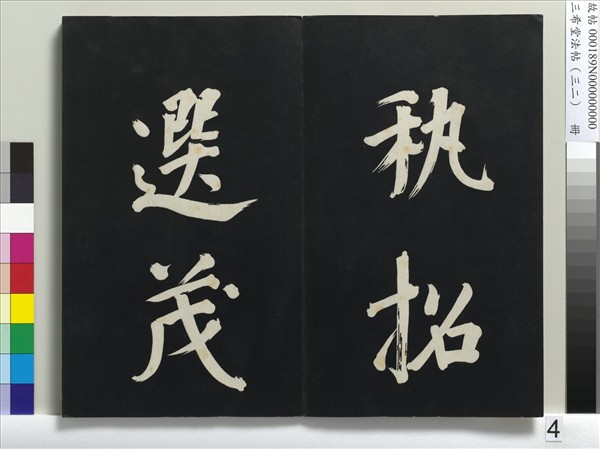 故帖 000189N000000000
三希堂法帖（三二）　冊
秇招
選茂
4